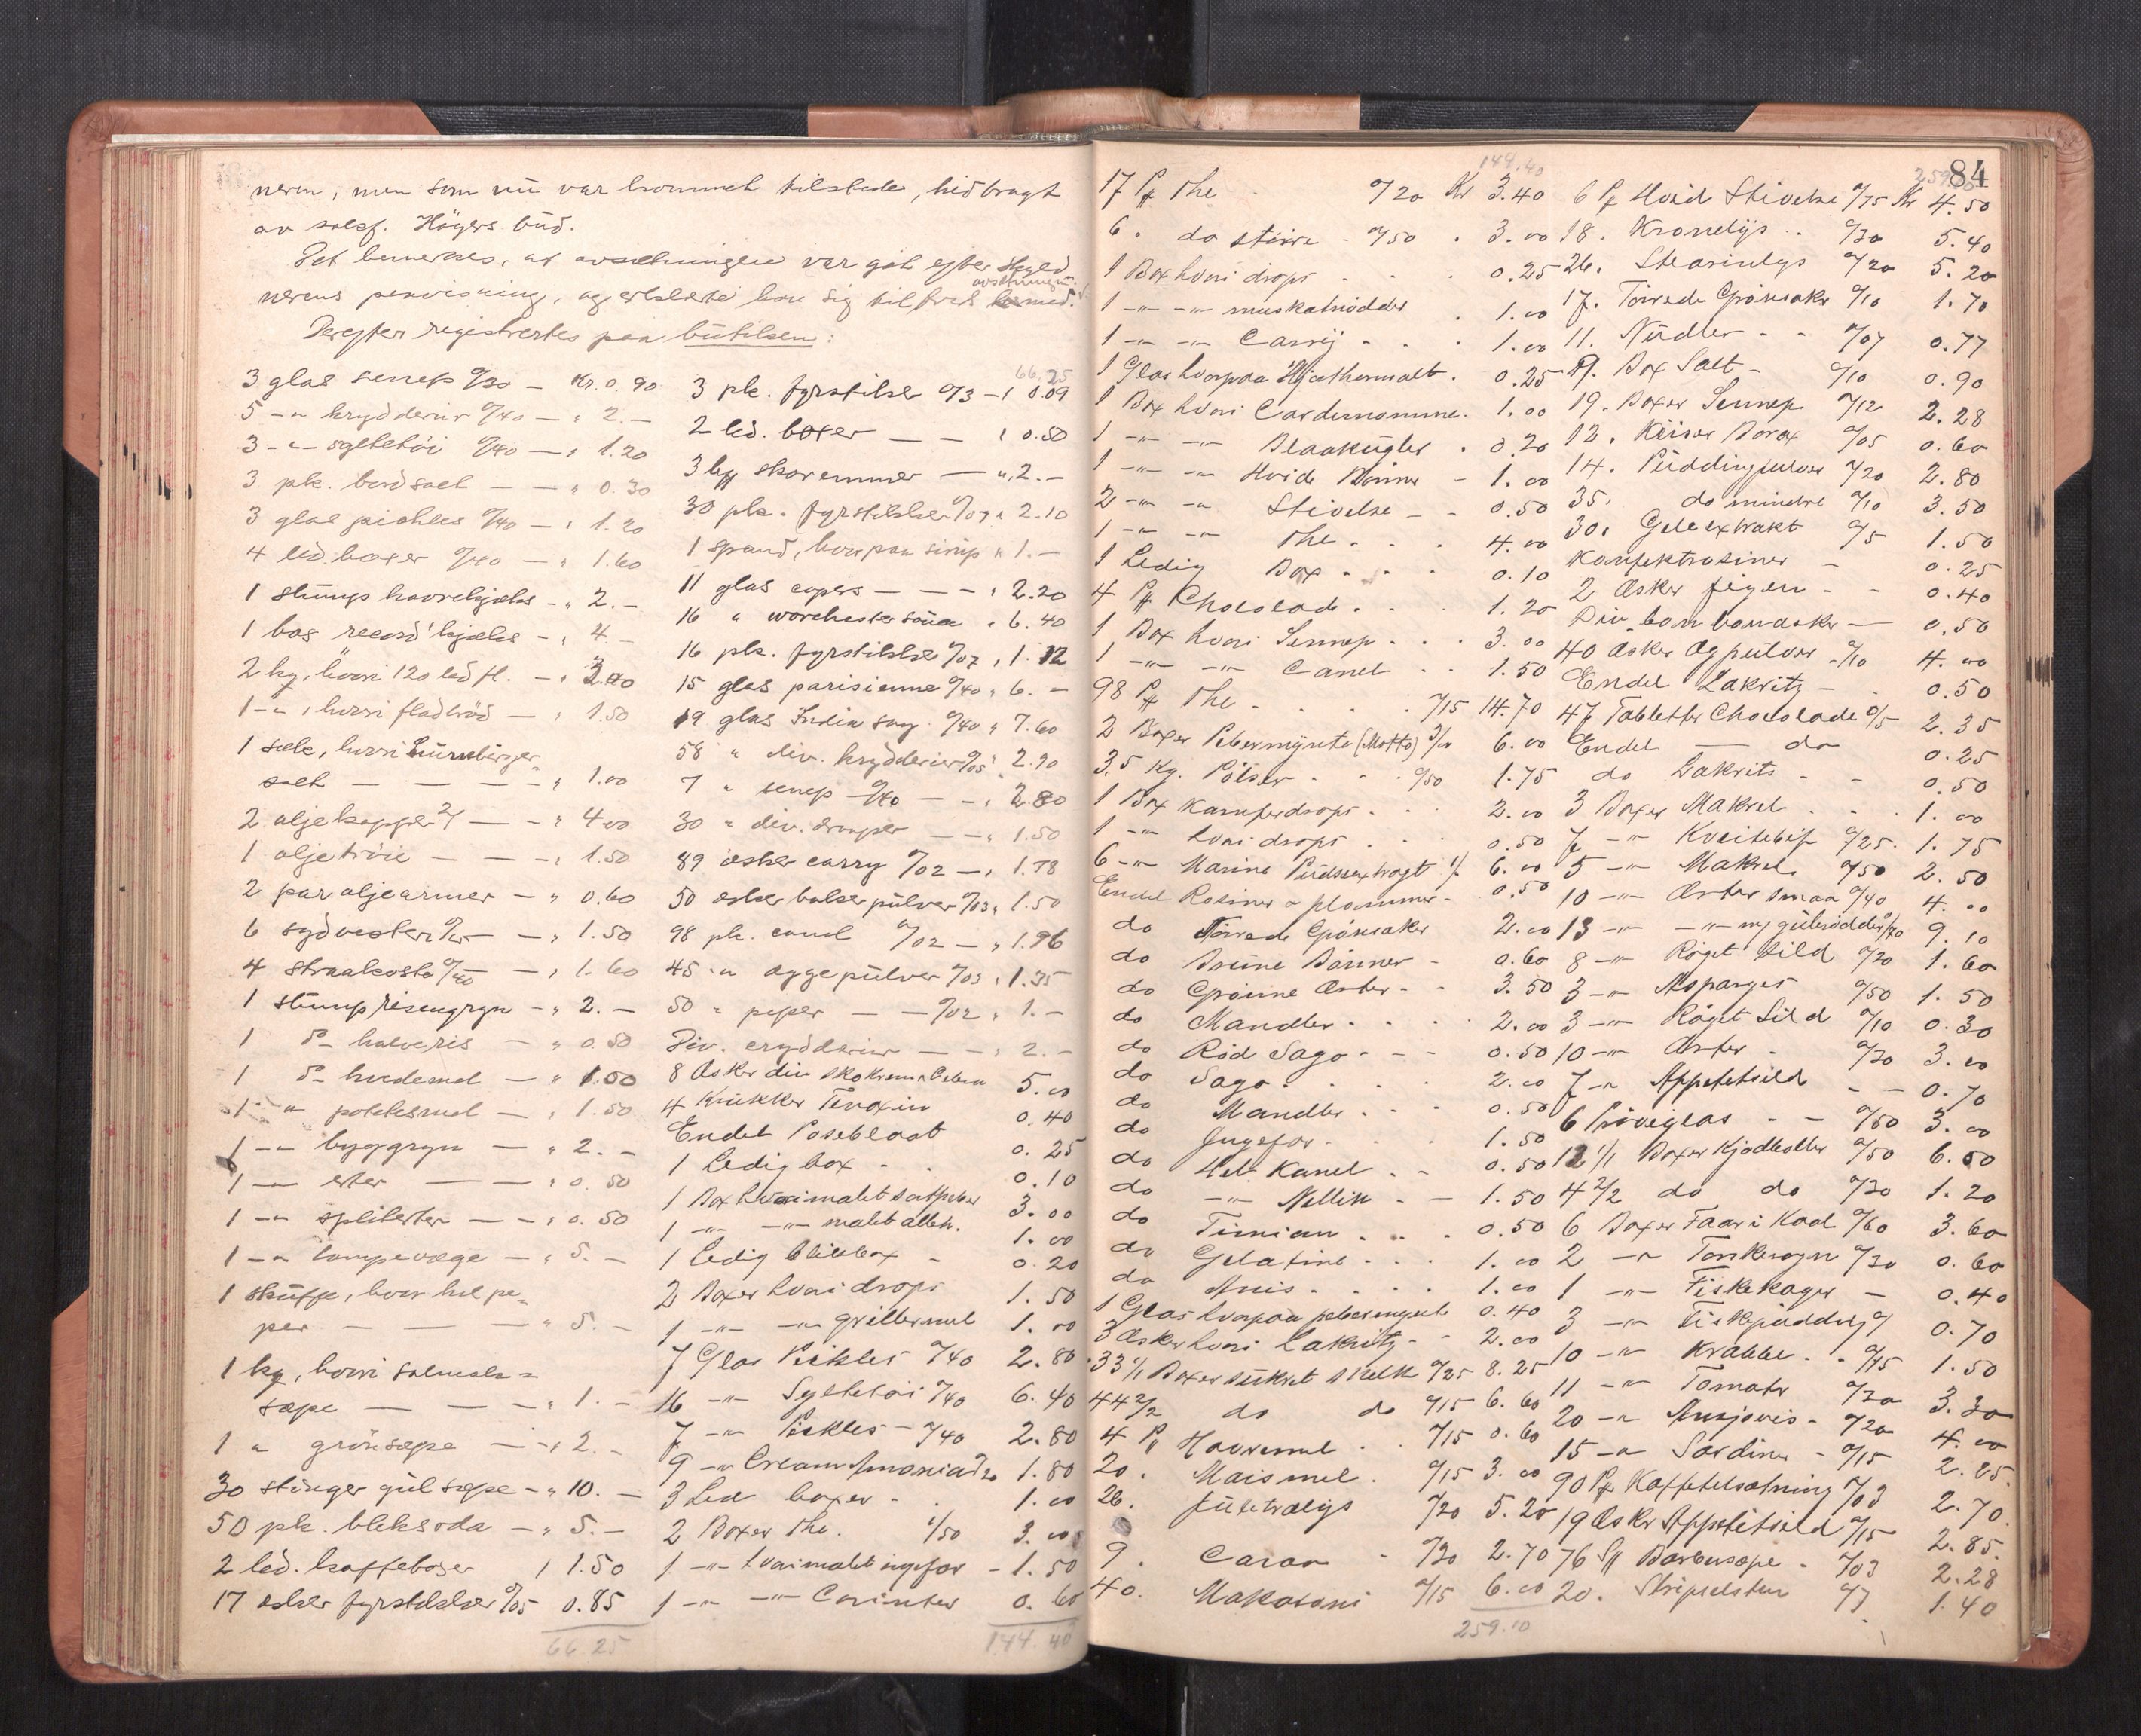 neren, men som nu var kommet tilstede, hidbragt
av sakf. Høyers bud.
Det bemerkes, at avsætningen var gjet efter
nerens paavisning, og erklærte han sig tilfreds avsætningen.
Derefter registrertes paa butikken:
3 glas senep %30 — Kr. 0.90
5 -"- krydderier %40 — " 2.—
3 -"- syltetøi %40 — " 1.20
3 pk. bordsalt — — " 0.30
3 glas pickles %40 — " 1.20
4 led. boxer %40 — " 1.60
1 stump havrekjæks — " 2.—
1 box record kjæks — " 4.—
2 kg, hvori 120 led fl. — "
1 -"-, hvori fladbrød — " 1.50
1 sæk, hvori Lüneburger-
salt — — — " 1.00
2 oljekapper 2/ — — " 4.00
1 oljetrøie — — — " 1.50
2 par oljeærmer — " 0.60
6 sydvester — " 1.50
4 straakoste %40 — " 1.60
1 stump risengryn — " 2.—
1 do halveris — " 0.50
1 do hvedemel — " 1.50
1 " potetesmel — " 1.50
1 -"- byggryn — " 2.—
1 -"- erter — — " 0.50
1 -"- spliterter — — " 0.50
1 -"- lampevæge — " 5.—
1 skuffe, hvori hel pe-
per — — — " 5.—
1 kg, hvori salmiak-
sæpe — — — " 1.—
1 " grønsæpe — " 2.—
30 stænger gul sæpe — " 10.—
50 pk. bleksoda — " 5.—
2 led. kaffeboxer " 1.50
17 æsker fyrstikker %05 0.85
66.25
66.25
3 pk. fyrstikker %3 — " 0.09
2 led. boxer — — " 0.50
3 kg skoremmer — " 2.—
30 pk. fyrstikker %07 " 2.10
1 spand, hvorpaa sirup " 1.—
11 glas capers — — — " 2.20
16 " worchestersaus " 6.40
16 pk. fyrstikker %07 " 1.12
15 glas parisienne %40 " 6.—
19 glas India soy. %40 " 7.60
58 " div. krydderier %05 " 2.90
7 " senep %40 — — " 2.80
30 " div. draaper — — " 1.50
89 æsker carry %02 — " 1.78
50 æsker bakepulver %03 " 1.50
98 pk. canel %02 — " 1.96
45 -"- eggepulver %03 " 1.35
50 " peper — — %02 " 1.—
Div. crydderier — — " 2.—
8 Æsker div skokrem 5.00
4 Krukker Tenaxin 0.40
Endel Posebloat 0.25
1 Ledig box - . 0.10
1 Box hvori malet sortpeber 3.00
1 -"- -"- malet alleh. 1.00
1 Ledig blikbox - 0.20
2 Boxer hvori drops 1.50
1 -"- -"- grillermel 1.00
7 Glas Pickles %40 2.80
16 -"- Syltetøi %40 6.40
7 -"- Pickles - %40 2.80
9 -"- Cream Amonia %20 1.80
3 Led boxer - . 1.00
2 Boxer The. 1/50 3.00
1 -"- hvori malet ingefær - 1.50
1 -"- -"- Corinter 0.60
144.40
84
144.40
17 Pk The %20 Kr 3.40
6 . do større - %50 . 3.00
1 Box hvori drops . . . 0.25
1 -"- -"- muskatnødder . 1.00
1 -"- -"- Carrij . . . 1.00
1 Glas hvorpaa Hjorthornsalt . 0.25
1 Box hvori Cardemomme . 1.00
1 -"- -"- Blaakugler . 0.20
1 -"- -"- Hvide Bønner - 1.00
2 -"- -"- Stivelse - - 0.50
1 -"- -"- The . . . 4.00
1 Ledig Box . . . 0.10
4 Pk Chocolade . . 1.20
1 Box hvori Sennep . . . 3.00
1 -"- -"- Canel . . 1.50
98 Pk The . . . . %15 14.70
2 Boxer Pebermynte (Motto) 3/00 6.00
3.5 Kg. Pølser . . . %50 1.75
1 Box Kamferdrops . . . 2.00
1 -"- hvori drops . . . 0.50
6 -"- Marine Pudseextragt 1/ 6.00
Endel Rosiner & plommer - 0.50
do Tørrede Grønsaker 2.00
do Brune Bønner - 0.60
do Grønne Erter - - 3.50
do Mandler . . . . 2.00
do Rød Sago . - - 0.50
do Sago . . . . 2.00
do Mandler . . . 0.50
do Ingefær . . . 1.50
do Hel Kanel . . - 0.50
do -"- Nellik . - 1.50
do Timian . . . 0.50
do Gelatine . . . 1.00
do Anis . . . . 1.00
1 Glas hvorpaa pebermynte 0.40
3 Æsker hvori Lakritz - 2.00
33 1/1 Boxer sukret Melk %25 8.25
44 2/2 do do %15 6.60
4 Pk Havremel . . %15 0.60
20 . Maismel . %15 3.00
26 . Juletrælys %20 5.20
9 . Cacao - %30 2.70
40 . Makaroni %15 6.00
259.10
6 Pk Hvid Stivelse %75 Kr 4.50
18 . Kronelys . . %30 5.40
26 . Stearinlys %20 5.20
17 . Tørrede Grønsaker %10 1.70
11 . Nudler - - %07 0.77
9 . Box Salt - %10 0.90
19 . Boxer Sennep %12 2.28
12 . Keiser Borax %05 0.60
14 . Puddingpulver %20 2.80
35 . do mindre %10 3.50
30 . Geleextrakt %5 1.50
Konfektrosiner - 0.25
2 Æsker figen - - 0.40
Div. bonbonæsker — 0.50
40 Æsker Egpulver - %10 4.00
Endel Lakritz - . 0.50
47 Tabletter Chocolade %5 2.35
Endel — do 0.25
do Lakrits - - 0.50
3 Boxer Makrel . . . 1.00
7 -"- Kveitebif %25 . 1.75
5 -"- Makrel %50 2.50
10 -"- Erter smaa %40 4.00
13 -"- -"- m/ gulrødder %70 9.10
8 -"- Røget Sild %20 1.60
3 -"- Asparges %50 1.50
3 -"- Røget Sild %10 0.30
10 -"- Erter - %30 3.00
7 -"- Appetitsild - - 0.70
6 Prøveglas - - %50 3.00
12 1/1 Boxer Kjødboller %50 6.00
4 2/2 do do %30 1.20
6 Boxer Faar i Kaal %60 3.60
2 -"- Torskerogn %30 0.60
1 -"- Fiskekager - 0.40
3 -"- Fiskepudding % 0.70
10 -"- Krabbe . . %15 1.50
11 -"- Tomater %30 3.30
20 -"- Ansjovis - %20 4.00
15 -"- Sardiner - %15 2.25
90 Pk Kaffetilsætning %03 2.70
19 Æsker Appetitsild %15 2.85
76 St Barbersæpe - %03 2.28
20 . %7 1.40